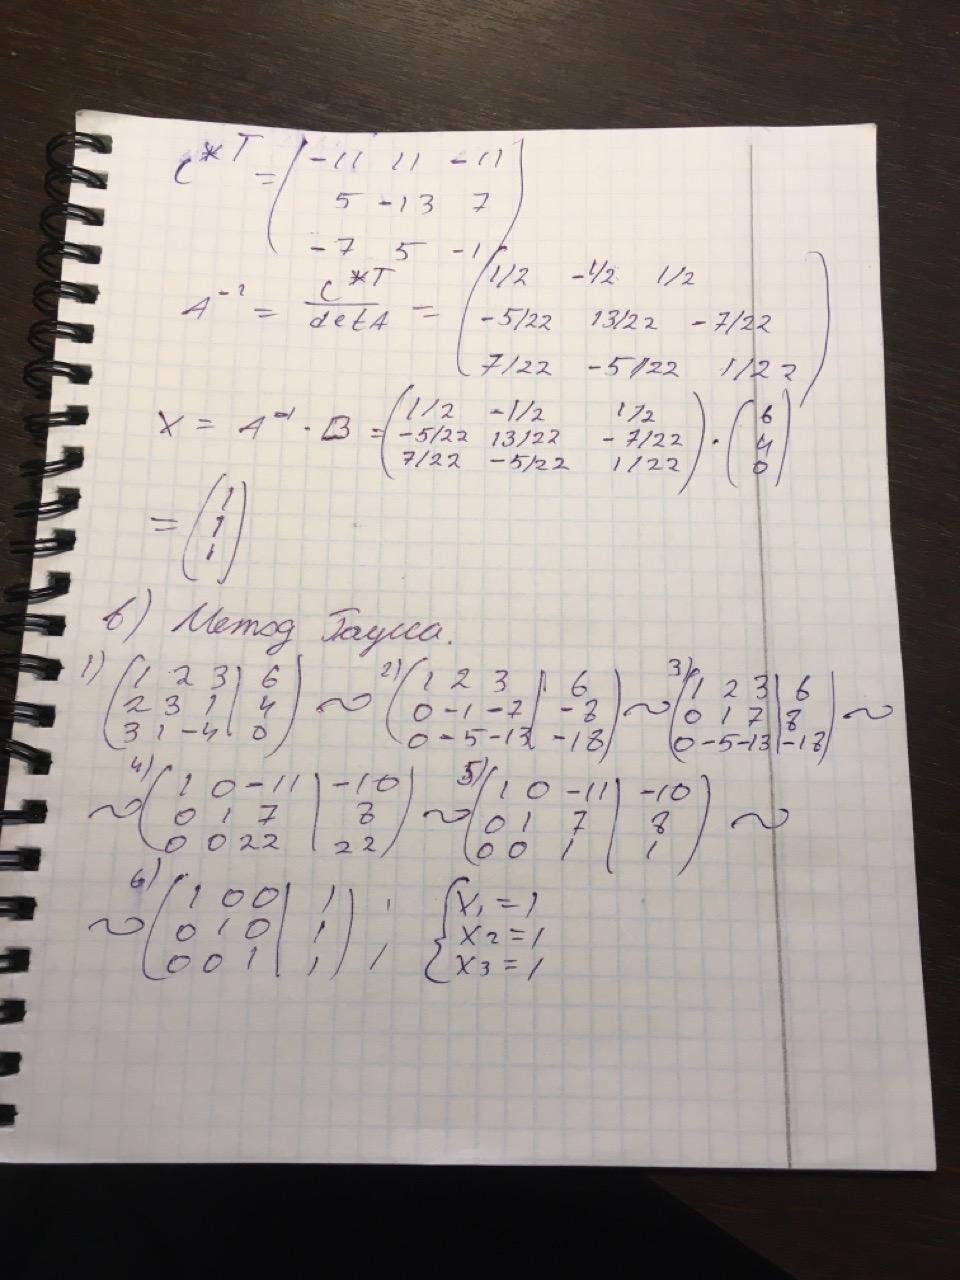 C*T = (-11 11 -11
5 -13 7
-7 5 -1)
A⁻¹ = C*T / detA = (1/2 -1/2 1/2
-5/22 13/22 -7/22
7/22 -5/22 1/22)
X = A⁻¹ · B = (1/2 -1/2 1/2 -5/22 13/22 -7/22 7/22 -5/22 1/22) · (6 4 0)
= (1 1 1)
в) Метод Гаусса.
1) (1 2 3 | 6
2 3 1 | 4
3 1 -4 | 0) ~
2) (1 2 3 | 6
0 -1 -7 | -8
0 -5 -13 | -18) ~
3) (1 2 3 | 6
0 1 7 | 8
0 -5 -13 | -18) ~
4) ~ (1 0 -11 | -10
0 1 7 | 8
0 0 22 | 22) ~
5) (1 0 -11 | -10
0 1 7 | 8
0 0 1 | 1) ~
6) ~ (1 0 0 | 1
0 1 0 | 1
0 0 1 | 1) ;
{x₁ = 1
x₂ = 1
x₃ = 1